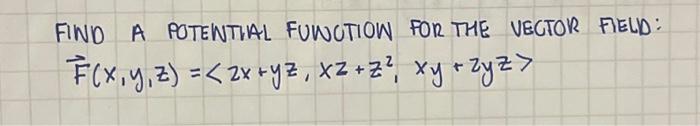 FIND A POTENTIAL FUNCTION FOR THE VECTOR FIELD:
F⃗(x,y,z) = <2x+yz, xz+z², xy+2yz>